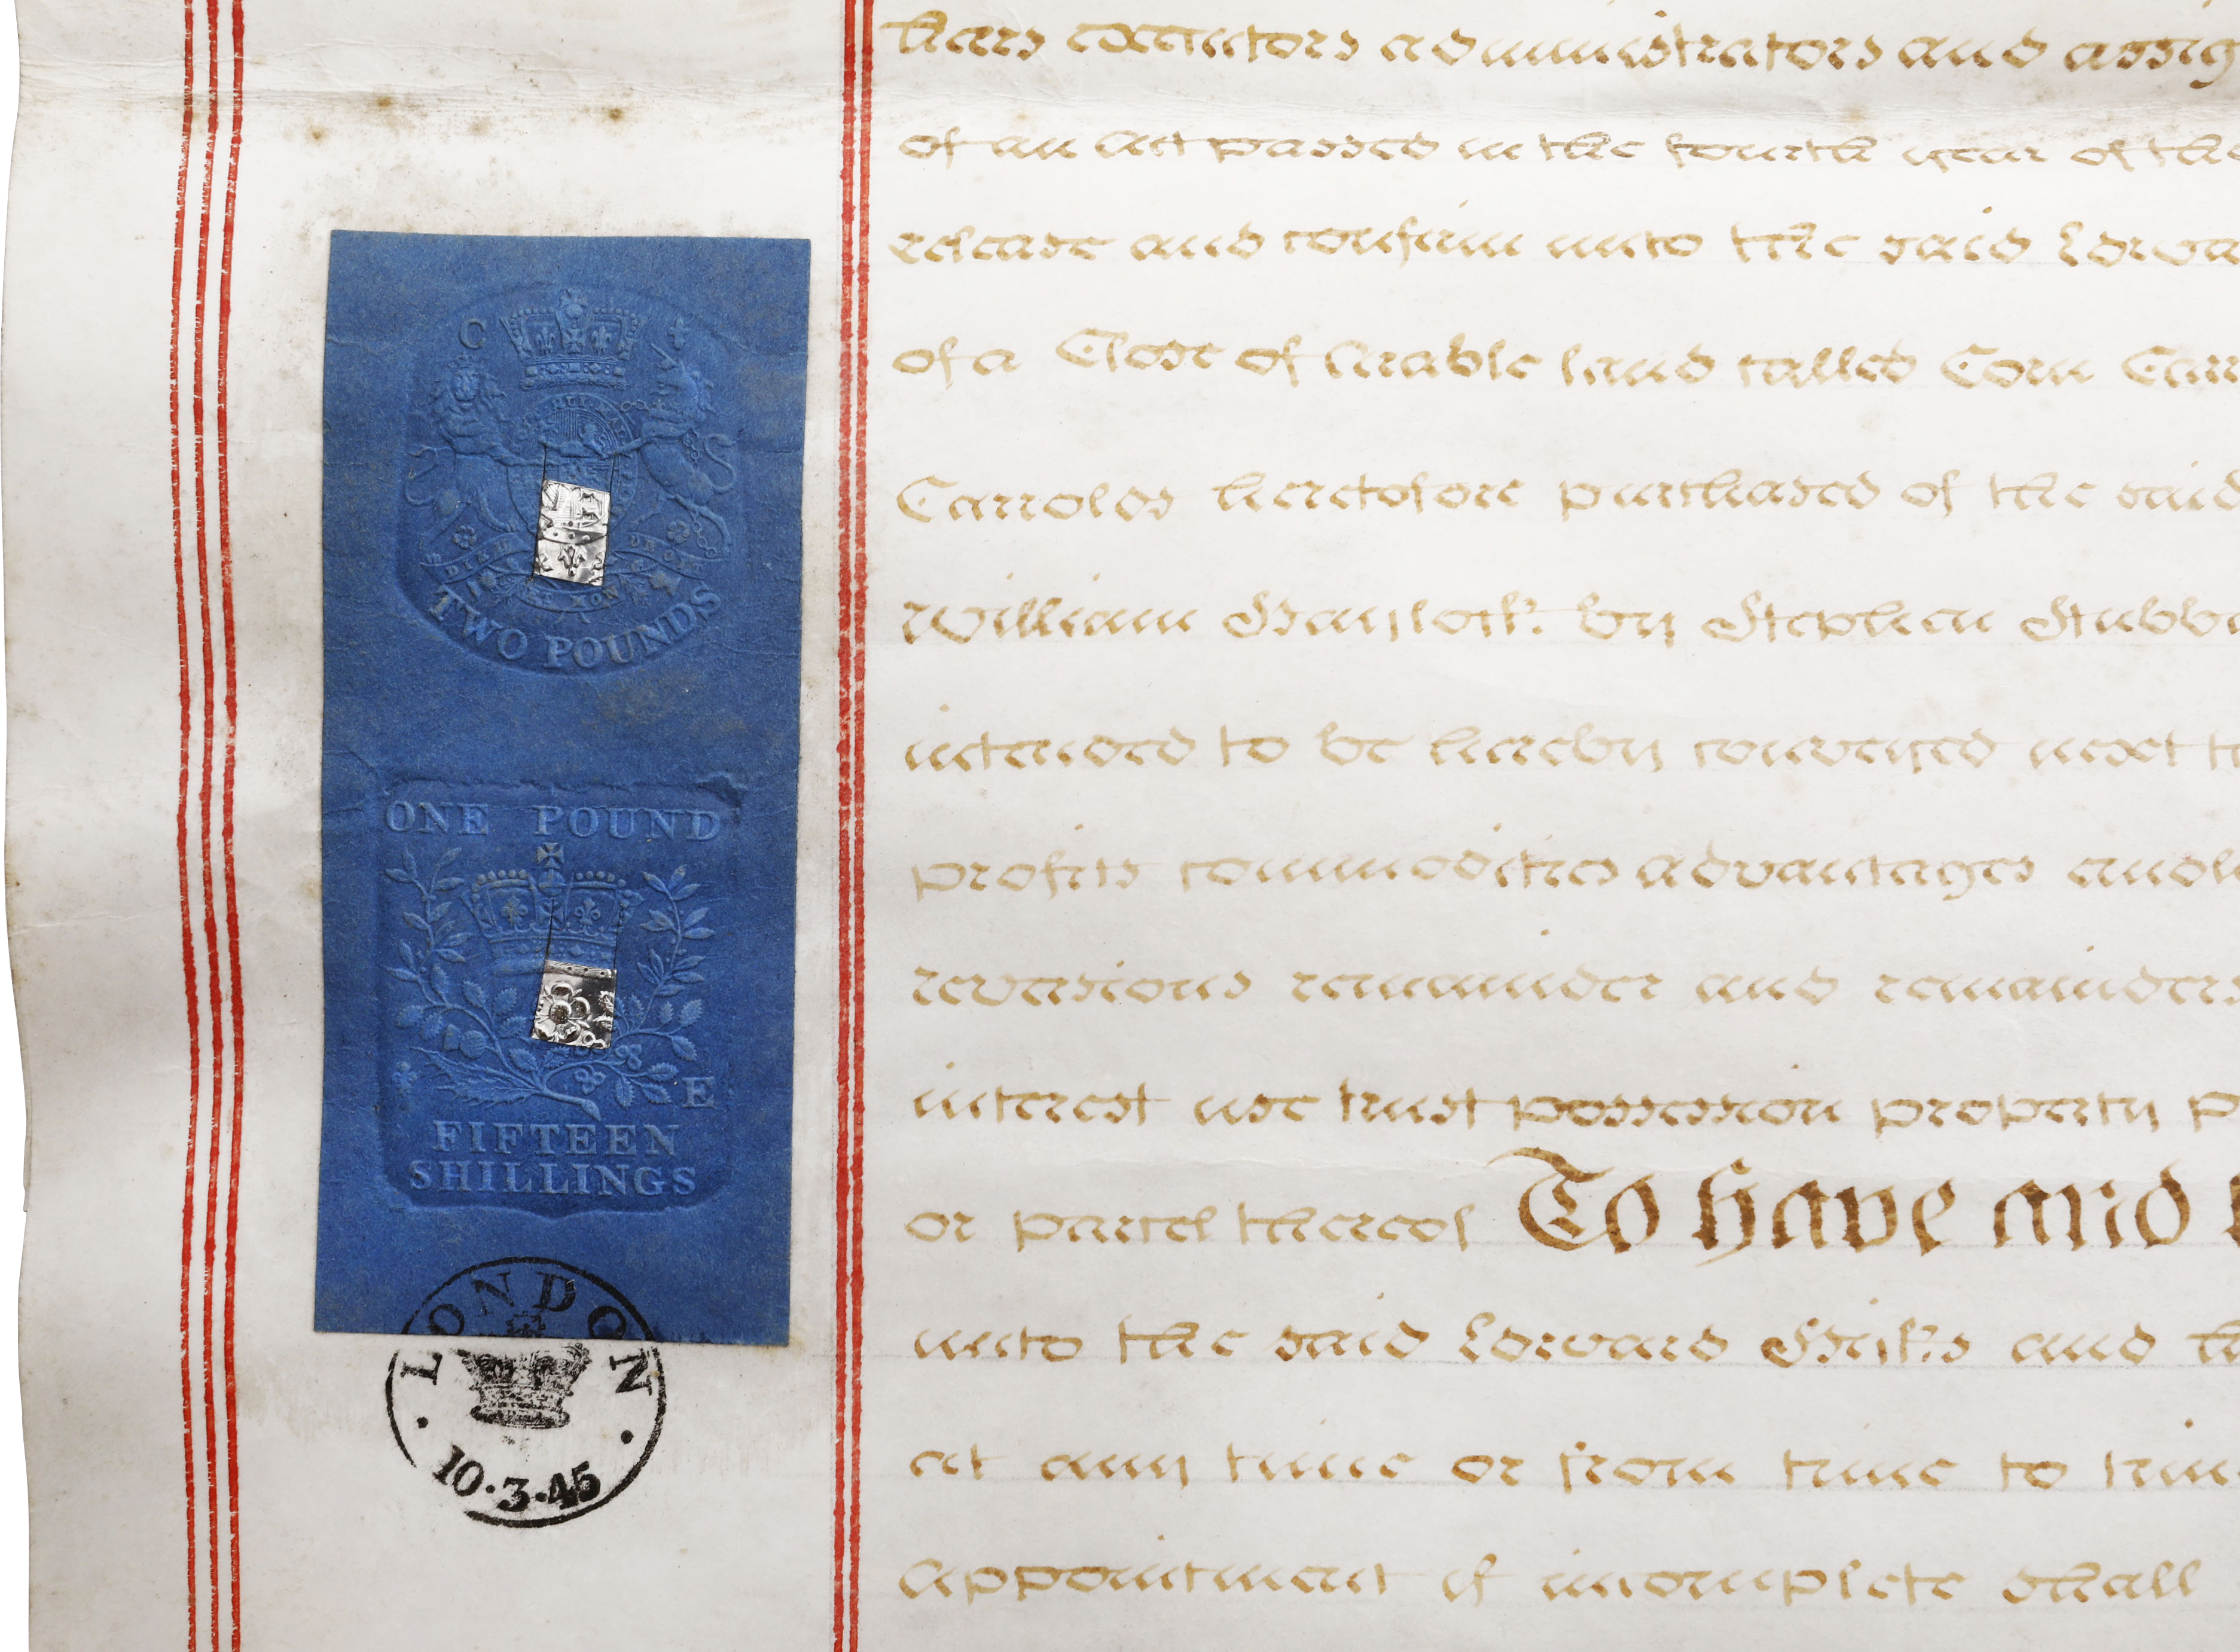 C
DIEU ET MON
TWO POUNDS
ONE POUND
E
FIFTEEN
SHILLINGS
LONDON
10·3·45
heirs executors administrators and assig
of an Act passed in the fourth year of the
release and confirm unto the said Edwa
of a Close of Arable land called Corn Carr
Carrolds heretofore purchased of the said
William Haylock by Stephen Stubbi
intended to be hereby conveyed next t
profits commodities advantages and
reversions remainder and remainders
interest use trust possession property p
or parcel thereof To have and
unto the said Edward Hyks and h
at any time or from time to tim
Appointment if incomplete shall